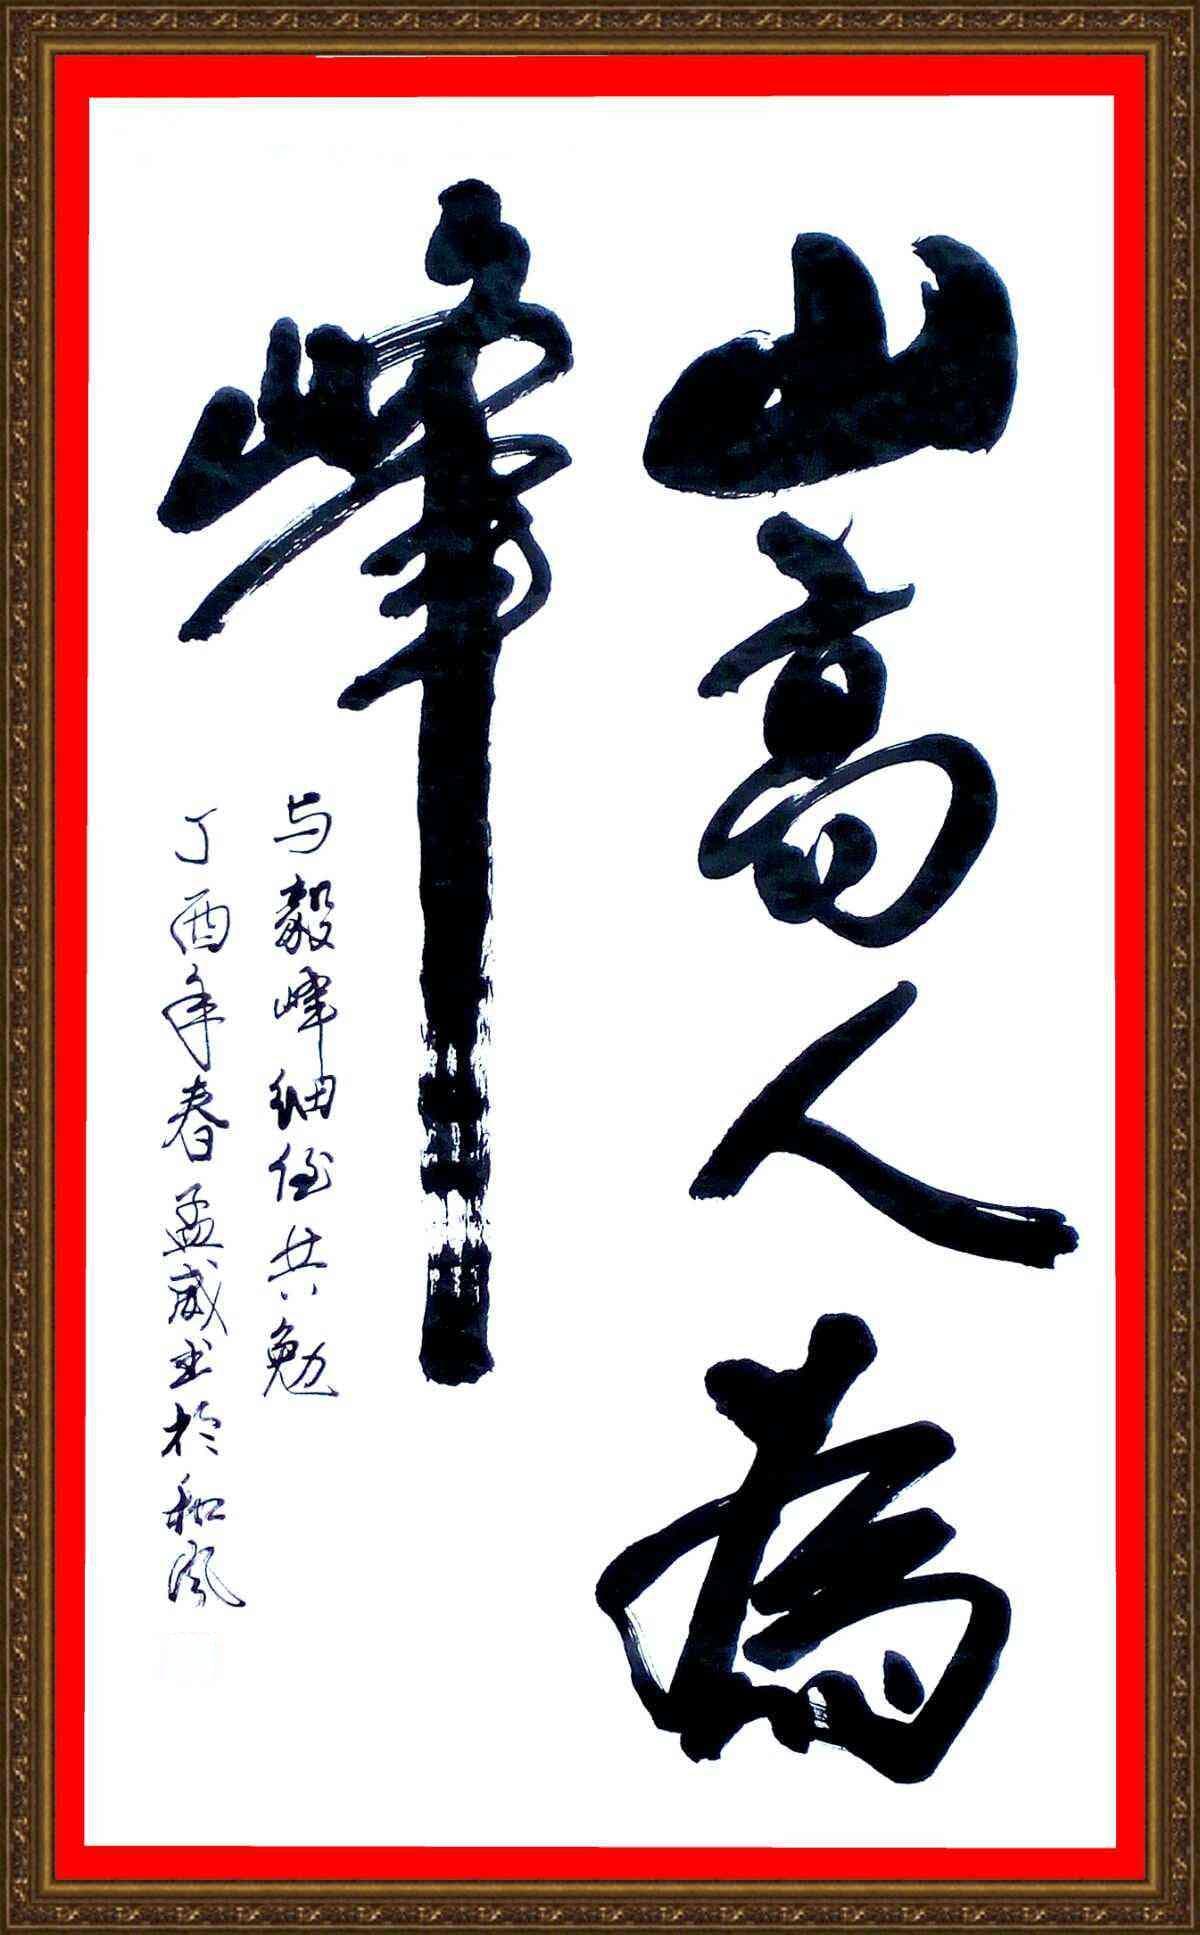 山高人為
峰
与毅峰细侄共勉
丁酉年春孟威书於和风